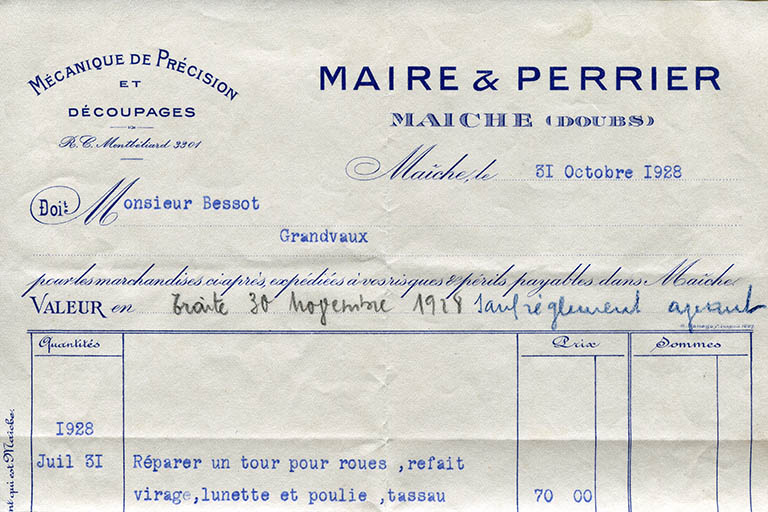 MÉCANIQUE DE PRÉCISION
ET
DÉCOUPAGES
R.C. Montbéliard 3301
MAIRE & PERRIER
MAICHE (DOUBS)
Maîche, le 31 Octobre 1928
Doit Monsieur Bessot
Grandvaux
pour les marchandises ci-après, expédiées à vos risques & périls, payables dans Maîche.
VALEUR en traite 30 Novembre 1928 sauf réglement avant
Quantités Prix Sommes
1928
Juil 31 Réparer un tour pour roues ,refait
virage,lunette et poulie ,tassau 70 00
nt qui est Maîche.